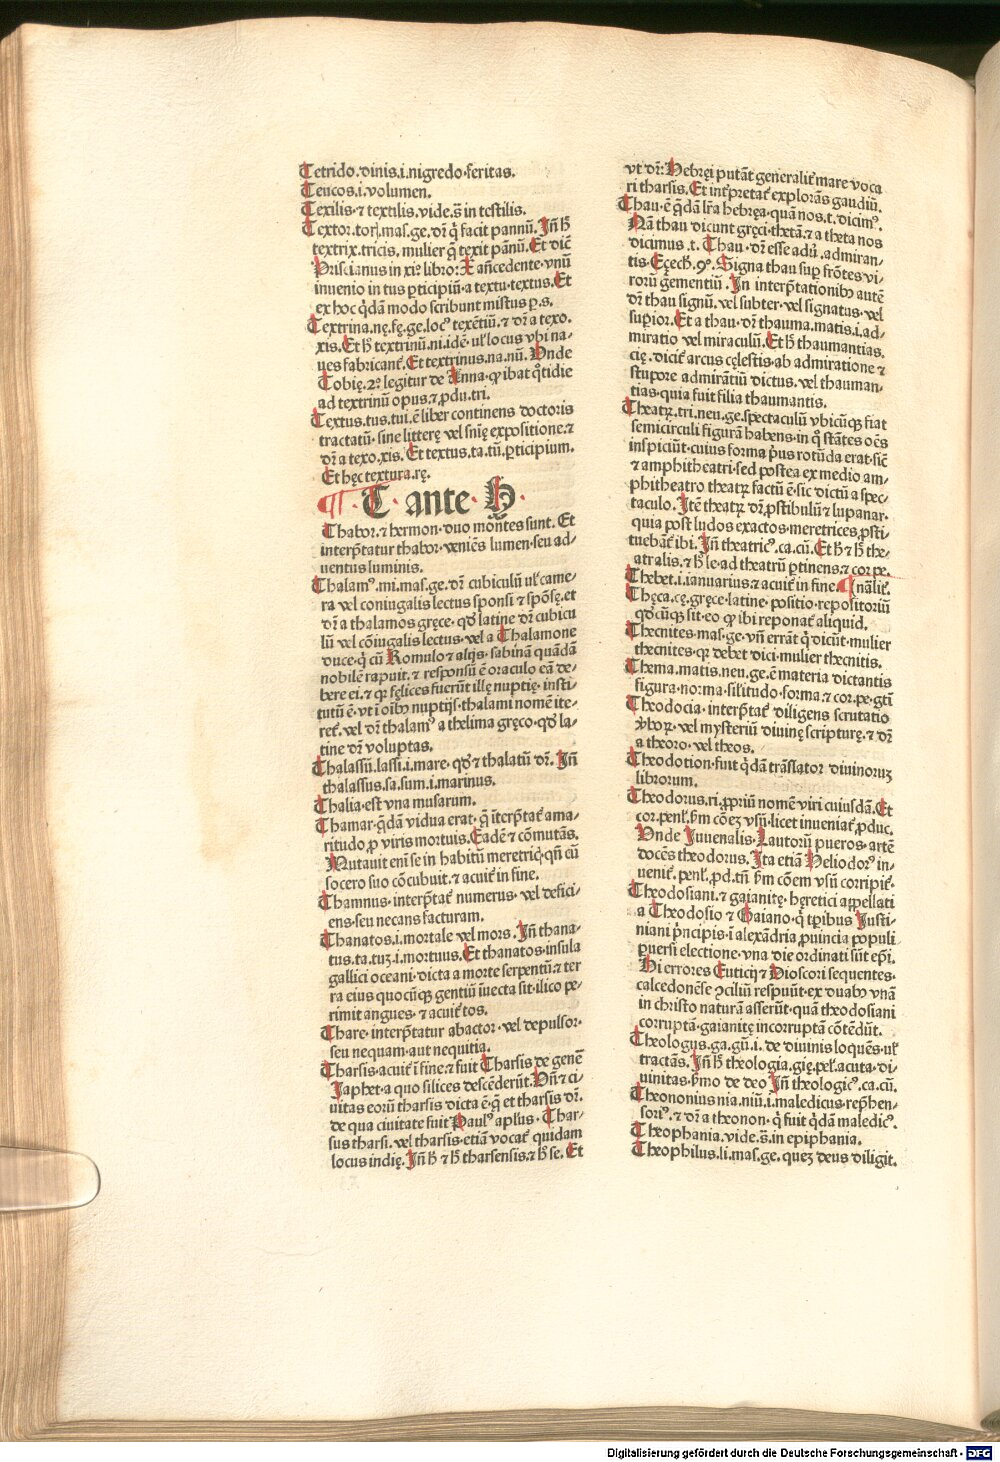 Tetrido.dinis.i.nigredo.feritas.
Teucos.i.volumen.
Texilis.⁊ textilis.vide.s̃ in testilis.
Textor.torꝭ.mas.ge.dr̃ q̃ facit pannũ. Jñ h̃
textrix.tricis. mulier q̃ texit pãnũ. Et dic̃
Priscianus in xiº libro: X añcedente.vnũ
inuenio in tus ꝑticipiũ.a textu.textus. Et
ex hoc q̃dã modo scribunt mistus ꝑ.s.
Textrina.nę.fę.ge.locꝰ texẽtiũ.⁊ dr̃ a texo.
xis. Et h̃ textrinũ.ni.idẽ.ul̃ locus vbi na-
ues fabricant̃. Et textrinus.na.nũ. Vnde
Tobię.2º legitur de Anna.ꝙ ibat q̃tidie
ad textrinũ opus.⁊ ꝓdu.tri.
Textus.tus.tui.ẽ liber continens doctoris
tractatũ.sine litterę vel sñię expositione.⁊
dr̃ a texo.xis. Et textus.ta.tũ.ꝑticipium.
Et hęc textura.rę.
¶ T ante H.
Thabor.⁊ hermon.duo montes sunt. Et
interp̃tatur thabor.veniẽs lumen.seu ad-
uentus luminis.
Thalamꝰ.mi.mas.ge.dr̃ cubiculũ ul̃ came-
ra vel coniugalis lectus sponsi ⁊ spõsę.et
dr̃ a thalamos gręce.qd̓ latine dr̃ cubicu
lũ vel cõiugalis lectus.vel a Thalamone
duce.q̃ cũ Romulo ⁊ alijs.sabinã quãdã
nobilẽ rapuit.⁊ responsũ ẽ oraculo eã de-
bere ei.⁊ qꝛ fęlices fuerũt illę nuptię.insti-
tutũ ẽ.vt ĩ oĩbꝰ nuptijs.thalami nomẽ ite-
ret̃.vel dr̃ thalamꝰ a thelima gręco.qd̓ la-
tine dr̃ voluptas.
Thalassũ.lassi.i.mare.qd̓ ⁊ thalatũ dr̃. Jñ
thalassus.sa.sum.i.marinus.
Thalia.est vna musarum.
Thamar.q̃dã vidua erat.q̃ ĩterp̃tat̃ ama-
ritudo.ꝓ viris mortuis. Eadẽ ⁊ cõmutãs.
Mutauit eni̇̃ se in habitũ meretricꝭ.qñ cũ
socero suo cõcubuit.⁊ acuit̃ in fine.
Thamnus.interp̃tat̃ numerus.vel defici-
ens.seu necans facturam.
Thanatos.i.mortale vel mors. Jñ thana-
tus.ta.tuꝫ.i.mortuus. Et thanatos.insula
gallici oceani.dicta a morte serpentũ.⁊ ter
ra eius quocũqꝫ gentiũ ĩuecta sit.ilico pe-
rimit angues.⁊ acuit̃ tos.
Thare.interp̃tatur abactor.vel depulsor.
seu nequam.aut nequitia.
Tharsis.acuit̃ ĩ fine.⁊ fuit Tharsis de genẽ
Japhet.a quo silices descẽderũt. Vñ ⁊ ci-
uitas eorũ tharsis dicta ẽ.q̃ et tharsis dr̃.
de qua ciuitate fuit Paulꝰ apl̃us. Thar-
sus tharsi.vel tharsis.etiã vocat̃ quidam
locus indię. Jñ h̃ ⁊ h̃ tharsensis.⁊ h̃ se. Et
vt dr̃: Hebręi putãt generalit̃ mare voca
ri tharsis. Et int̃pretat̃ explorãs gaudiũ.
Thau.ẽ q̃dã lr̃a hebręa.quã nos.t.dicimꝰ.
Nã thau dicunt gręci.thetã.⁊ a theta nos
dicimus.t. Thau.dr̃ esse adũ.admiran-
tis. Eęech̃.9º. Signa thau suꝑ frõtes vi-
rorũ gementiũ. Jn interp̃tationibꝰ autẽ
dr̃ thau signũ.vel subter.vel signatus.vel
suꝑior. Et a thau.dr̃ thauma.matis.i.ad-
miratio vel miraculũ. Et h̃ thaumantias.
cię.dicit̃ arcus cęlestis.ab admiratione ⁊
stupore admirãtiũ dictus.vel thauman-
tias.quia fuit filia thaumantis.
Theatꝝ.tri.neu.ge.spectaculũ vbicũqꝫ fiat
semicirculi figurã habens.in q̃ stãtes oẽs
inspiciũt.cuius forma p̃us rotũda erat.sic̃
⁊ amphitheatri.sed postea ex medio am-
phitheatro theatꝝ factũ ẽ.sic dictũ a spec-
taculo. Jtẽ theatꝝ dr̃.ꝓstibulũ ⁊ lupanar.
quia post ludos exactos.meretrices ꝓsti-
tuebãt̃ ibi. Jñ theatricꝰ.ca.cũ. Et h̃ ⁊ h̃ the-
atralis.⁊ h̃ le.ad theatrũ ꝑtinens.⁊ cor.pe.
Thebet.i.ianuarius.⁊ acuit̃ in fine. ¶ nãlit̃.
Thęca.cę.gręce.latine.positio.repositoriũ
qd̓cũqꝫ sit.eo ꝙ ibi reponat̃ aliquid.
Thecnites.mas.ge.vñ errãt q̃ dicũt.mulier
thecnites.qꝛ debet dici.mulier thecnitis.
Thema.matis.neu.ge.ẽ materia dictantis
figura.norma.silitudo.forma.⁊ cor.pe.gtĩ
Theodocia.interp̃tat̃ diligens scrutatio
v̓boꝝ.vel mysteriũ diuinę scripturę.⁊ dr̃
a theoro.vel theos.
Theodotion.fuit q̃dã trãslator diuinoruꝫ
librorum.
Theodorus.ri.ꝓpriũ nomẽ viri cuiusdã. Et
cor.penl̃.ẜm cõeꝫ vsũ.licet inueniat̃ ꝓduc.
Vnde Juuenalis. Lautorũ pueros.artẽ
docẽs theodorus. Jta etiã Heliodorꝰ in-
uenit̃.penl̃.ꝓd.tñ ẜm cõem vsũ corripit̃.
Theodosiani.⁊ gaianitę.hęretici appellati
a Theodosio ⁊ Gaiano.q̃ tp̃ibus Justi-
niani p̃ncipis.ĩ alexãdria ꝓuincia populi
ꝑuersi electione.vna die ordinati sũt ep̃i.
Hi errores Euticij ⁊ Dioscori sequentes.
calcedonẽse ꝯciliũ respuũt.ex duabꝰ vnã
in christo naturã asserũt.quã theodosiani
corruptã.gaianitę incorruptã cõtẽdũt.
Theologus.ga.gũ.i.de diuinis loquẽs.ul̃
tractãs. Jñ h̃ theologia.gię.pel̃.acuta.di-
uinitas.ẜmo de deo Jñ theologicꝰ.ca.cũ.
Theononius nia.niũ.i.maledicus.rep̃hen-
soriꝰ.⁊ dr̃ a theonon.q̃ fuit q̃dã maledicꝰ.
Theophania.vide.s̃.in epiphania.
Theophilus.li.mas.ge.queꝫ deus diligit.
Digitalisierung gefördert durch die Deutsche Forschungsgemeinschaft - DFG